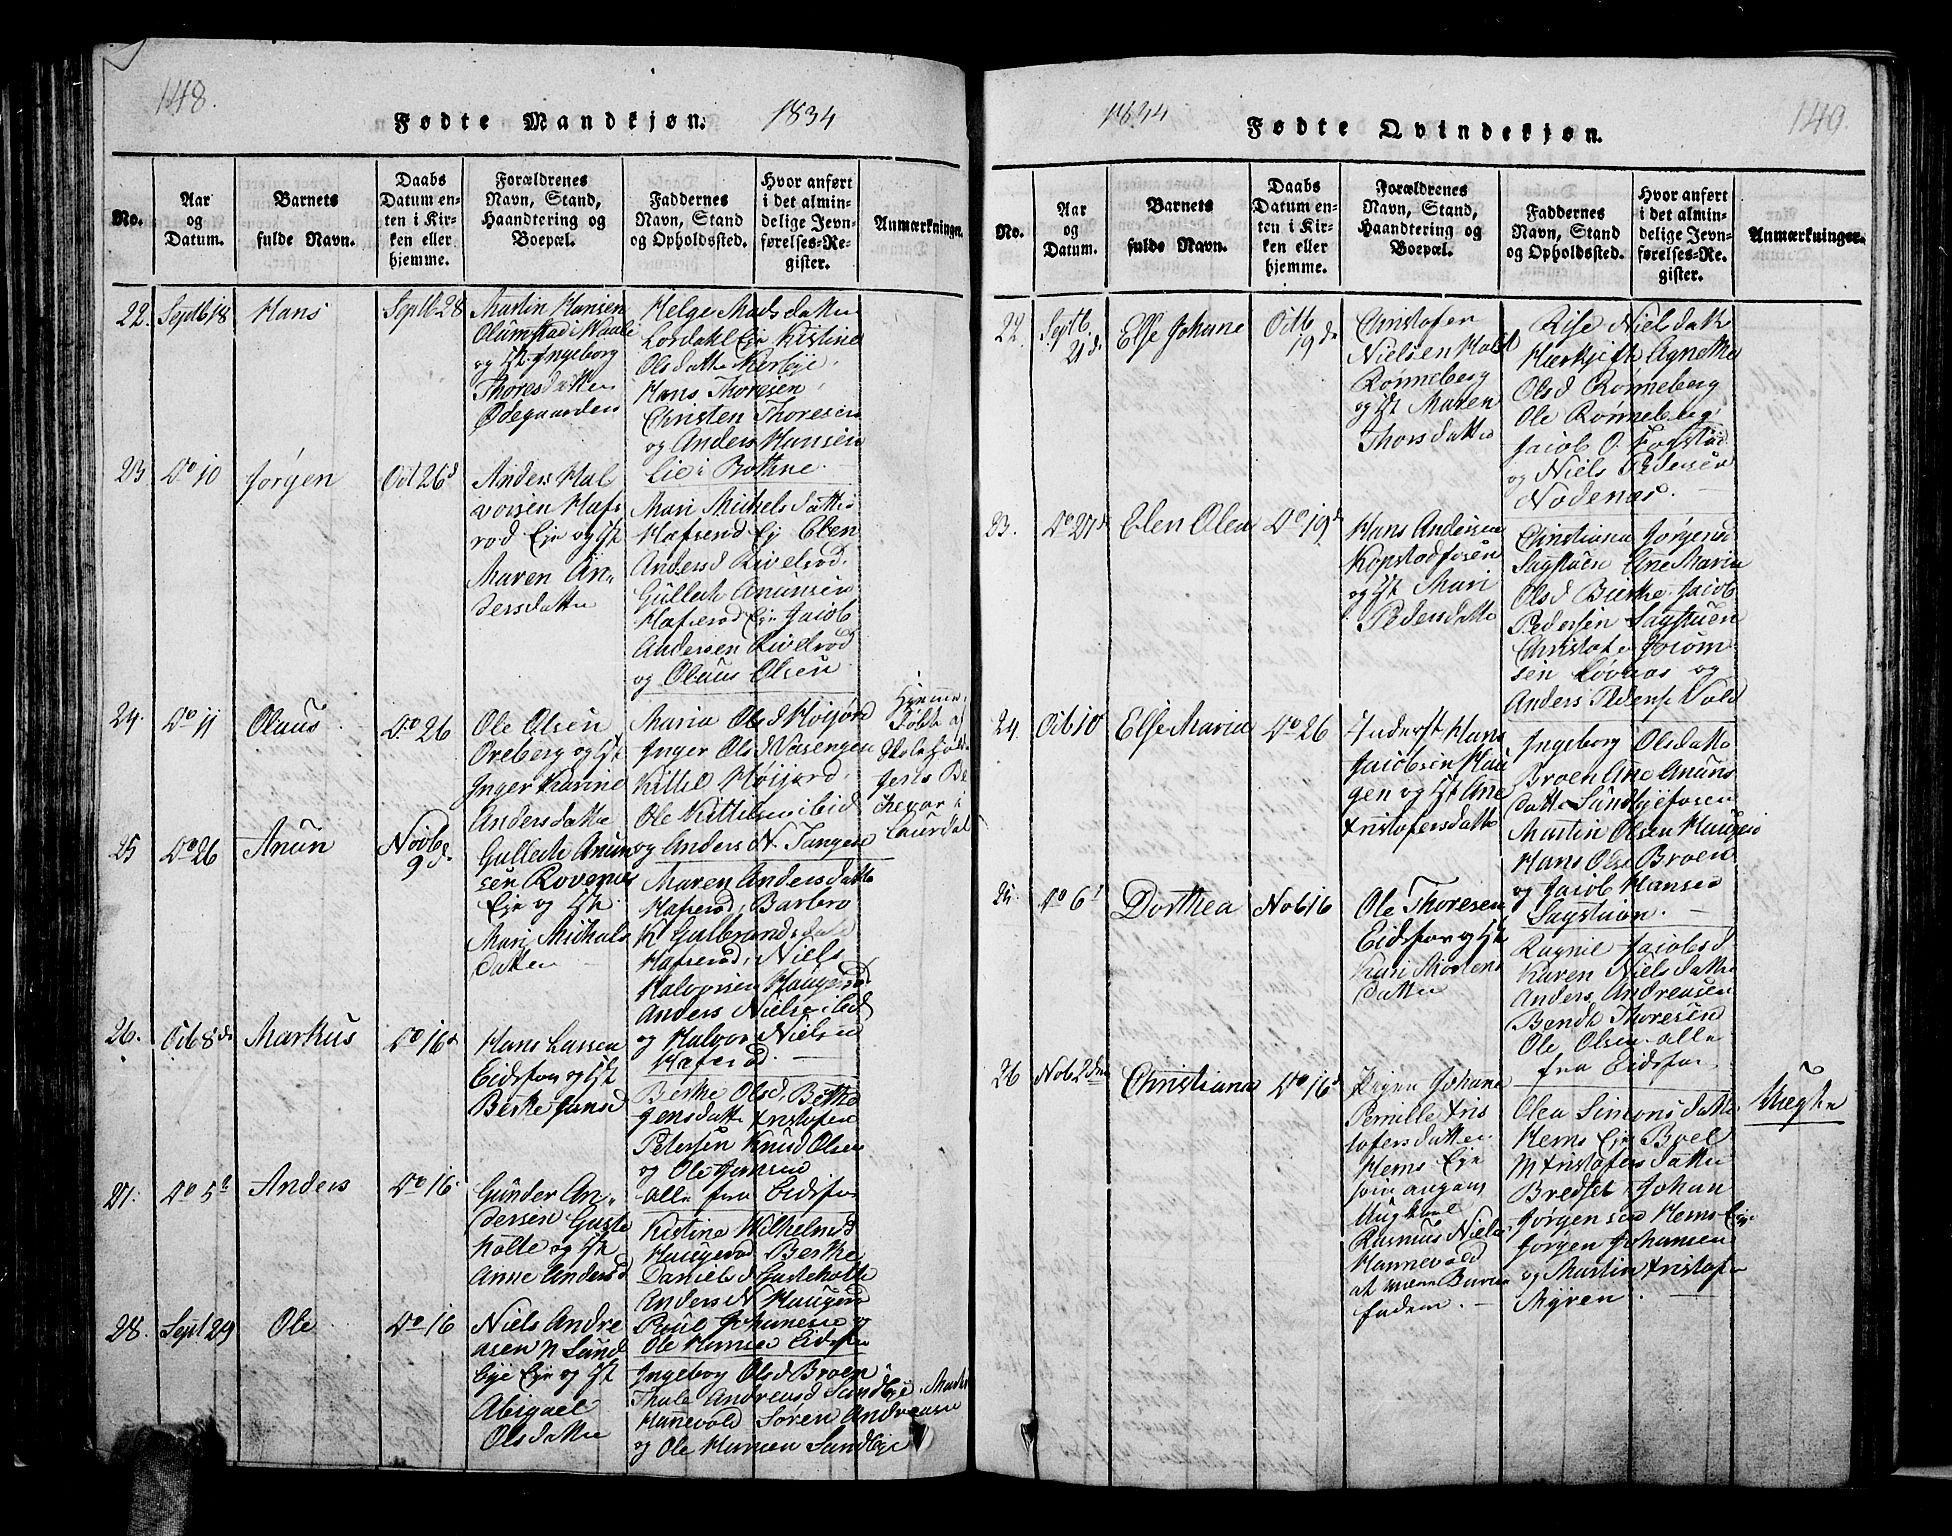 148.
Fødte Mandkjøn. 1834
No.
Aar og Datum.
Barnets fulde Navn.
Daabs Datum enten i Kirken eller hjemme.
Forældrenes Navn, Stand, Haandtering og Boepæl.
Faddernes Navn, Stand og Opholdssted.
Hvor anført i det almindelige Jevnførelses-Register.
Anmærkninger.
22. Septb 18 Hans Septb 28
Martin Hansen
og H. Ingeborg
Thoresdatter
Ødegaarden
Helge Madsdatter
Lofsdahl Eje Kistine
Olsdatter Kerbye
Hans Thoresen
Christen Thoresen
og Anders Hansen
Lie i Bothne.
23 Do 10 Jørgen Oct 26d
Anders Hal
vorsen Hafs
rod Eje og H
Maren An„
dersdatter
Mari Michelsdatter
Hafserod Ej Elen
Andersd Kivelrod.
Gullech Anunsen
Hafserod Eje Jacob
Andersen Kivelrod
og Olaus Olsen
24. Do 11 Olaus Do 26
Ole Olsen
Oreberg og H
Inger Karine
Andersdatter
Maria Olsd Høijord
Inger Olsd Vasengen
Kittel Høijord.
Ole Kittelsen ibid
og Anders N. Tangen
Hjemme
døbt af
25 Do 26 Anun Novb 9d.
Gullech Anun
sen Rovenes
Eje og H.
Mari Michels
datter
Maren Andersdatter
Hafserod, Barbro
K Gulbrandsdatter
Hafserod, Niels
Halvorsen Haugerod
Anders Nielsen ibid
og Halvor Nielsen
Hafserod.
26. Octb 8de Markus Do 16d
Hans Larsen
Eidsfos og H
Berthe Jansd
Berthe Olsd. Berthe
Jensdatter Kristofer
Petersen Knud Olsen
og Ole Jansen
alle fra Eidsfos
27. Do 5te Anders Do 16.
Gunder An„
dersen Gaste
holte og H
Anne Andersd
Kistine Wilhelmsd
Haugerod Berthe
Danielsd Gasteholte
Anders N Haugerod
Paul Johannesen og
Ole Hansen Eidsfos
28. Sept 29 Ole Do 16
Niels Andre
asen N Sand
bye Eje og H
Abigael
Olsdatter
Ingeborg Olsd Broen
Thale Andreasd Sandbye. Martin
Hanevold Søren Andreasen
og Ole Hansen Sandbye
1834
Fødte Qvindekjøn.
149.
No.
Aar og Datum.
Barnets fulde Navn.
Daabs Datum enten i Kirken eller hjemme.
Forældrenes Navn, Stand, Haandtering og Boepæl.
Faddernes Navn, Stand og Opholdssted.
Hvor anført i det almindelige Jevnførelses-Register.
Anmærkninger.
22. Septb. 21d. Else Johane Octb 19de
Christofer
Nielsen Holst
Rønneberg
og H Maren
Thorsdatter
Nielsdatter
Agnethe
Olsd Rønneberg
Ole Rønneberg
Jacob O. Fogstad
og Niels Pedersen
Nodenes.
23. Do 27d Elen Olea Do 19d
Hans Andersen
Kopstadfosen
og H Mari
Pedersdatter
Christiana Jørgensd
Sagstuen Ane Maria
Olsd Bierke. Jacob
Pedersen Sagstuen
Christofer Jacom
sen Løvaas og
Anders Pedersen Vold
24. Octb 10 Else Maria Do 26
Inderst Hans
Jacobsen Hau
gen og H Ane
Kristofersdatter
Ingeborg Olsdatter
Broen Ane Anuns
datter Sandbyefosen
Martin Olsen Haugen
Hans Olsen Broen
og Jacob Hansen
Sagstuen.
25. Do 6t Dorthea Novb 16
Ole Thoresen
Eidsfos og H
Kari Mortens
datter
Ragnil Jacobsd
Karen Nielsdatter
Anders Andreasen
Bendt Thoresen
Ole Olsen alle
fra Eidsfos.
26 Novb. 2den Christiana Do 16d
Pigen Johane
Pernille Kris
tofersdatter
Hems Eje
som angav
Ungkarl
Rasmus Niels
Hannevold
at være Barne
faderen.
Olea Simonsdatter
Hems Eje Boel
M Kristofersdatter
Bredset, Johan
Jørgensen Hems Eje
Jørgen Johansen
og Martin Kristofer
Myren.
Uægte